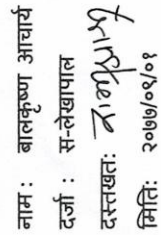 नाम : बालकृष्ण आचार्य
दर्जा : स-लेखापाल
दस्तखतः
मितिः २०७७/०९/०१